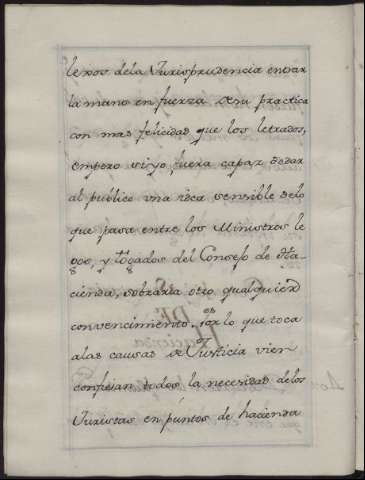 lexos dela Iurisprudencia entrar
la mano en fuerza de su practica
con mas felicidad que los letrados,
empero si yo fuera capaz de dar
al publico una idea sensible delo
que pasa entre los Ministros le
gos, y togados del Consejo de Ha-
cienda, sobraria otro qualquier
convencimiento, por lo que toca
alas causas de Justicia vien
confiesan todos la necesidad delos
Iuristas en puntos de hacienda